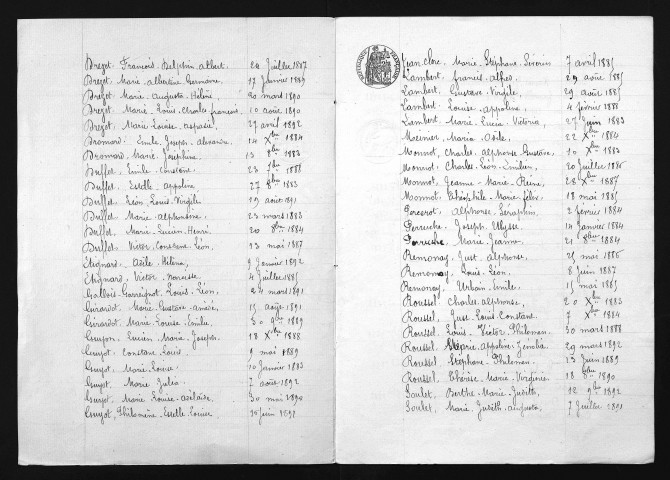 Brezet. François. Delphin. Albert. 24 Juillet 1887
Brezet. Marie. Albertine Germaine. 17 Janvier 1889
Brezet. Marie. Augusta. Hélène. 20 mars 1890
Brezet. Marie. Louis. Charles francois. 10 août 1890
Brezet. Marie. Louise. Aspasie. 27 avril 1892
Bromard. Emile. Joseph. Alexandre. 14 Xbre 1884
Bromard. Marie. Joséphine. 13 8bre 1883
Buffet. Emile. Constant. 23 1888
Buffet. Estelle. Appoline. 27 8bre 1883
Buffet. Léon. Louis. Virgile. 19 août 1891
Buffet. Marie. Alphonsine. 23 mars 1883
Buffet. Marie. Lucien. Henri. 20 1884
Buffet. Victor. Constant. Léon. 13 mai 1887
Etignard. Adèle. Hélène. 9 Janvier 1892
Etignard. Victor. Narcisse. 4 Juillet 1885
Louis. Léon. 24 mars 1891
Girardot. Marie. Gustave. 15 août 1891
Girardot. Marie. Louise. Emilie. 30 9bre 1889
Lucien. Marie. Joseph. 18 Xbre 1888
Guyot. Constant. Louis. 9 mai 1889
Guyot. Marie. Louise. 10 Janvier 1883
Guyot. Marie. Julia. 7 août 1892
Guyot. Marie. Louise. Adélaïde. 30 mai 1890
Guyot. Philomène. Estelle. Louise 15 juin 1891
Jean. Claude. Marie. Stéphane. Séverin 7 avril 1885
Lambert. francis. Alfred. 29 août 1885
Lambert. Gustave. Virgile. 29 août 1885
Lambert. Louise. Appoline. 4 février 1888
Lambert. Marie. Lucia. Victoria. 27 Juin 1883
Maria. Adèle. 22 Xbre 1884
Monnot. Charles. Alphonse. Gustave. 10 Xbre 1883
Monnot. Charles. Léon. Emilien. 20 Juillet 1886
Monnot. Jeanne. Marie. Reine. 28 Xbre 1887
Monnot. Théophile. Marie. félix. 18 mai 1885
Alphonse. Séraphin. 2 février 1884
Perruche. Joseph. Ulysse 14 Janvier 1884
Perruche. Marie. Jeanne. 21 8bre 1884
Remonay. Just. Alphonse. 25 mai 1886
Remonay. Louis. Léon. 8 Juin 1887
Remonay. Urbain. Emile. 15 mai 1885
Roussel. Charles. Alphonse. 20 Xbre 1883
Roussel. Just. Louis. Constant. 7 Xbre 1884
Roussel. Louis. Victor. Philemon. 30 mars 1888
Roussel. Marie. Appoline. Zénobie. 29 mars 1892
Roussel. Stéphane. Philemon. 13 Juin 1889
Roussel. Thérèse. Marie. Virginie. 18 8bre 1890
Soulet. Berthe. Marie. Judith. 12 9bre 1892
Soulet. Marie. Judith. Augusta. 7 Juillet 1891